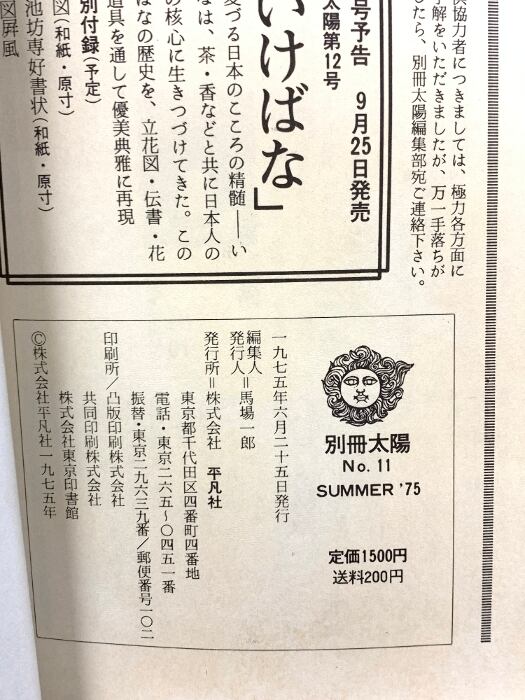 供協力者につきましては、極力各方面に
了解をいただきましたが、万一手落ちが
したら、別冊太陽編集部宛ご連絡下さい。
号予告 9月25日発売
太陽第12号
いけばな」
愛づる日本のこころの精髄——い
なは、茶・香などと共に日本人の
の核心に生きつづけてきた。この
ばなの歴史を、立花図・伝書・花
道具を通して優美典雅に再現
別付録(予定)
図(和紙・原寸)
池坊専好書状(和紙・原寸)
図屏風
別冊太陽
No. 11
SUMMER '75
定価1500円
送料200円
一九七五年六月二十五日発行
編集人
発行人＝馬場一郎
発行所＝株式会社 平凡社
東京都千代田区四番町四番地
電話・東京二六五〜〇四五一番
振替・東京二九六三九番/郵便番号一〇二
印刷所/凸版印刷株式会社
共同印刷株式会社
株式会社東京印書館
©株式会社平凡社一九七五年